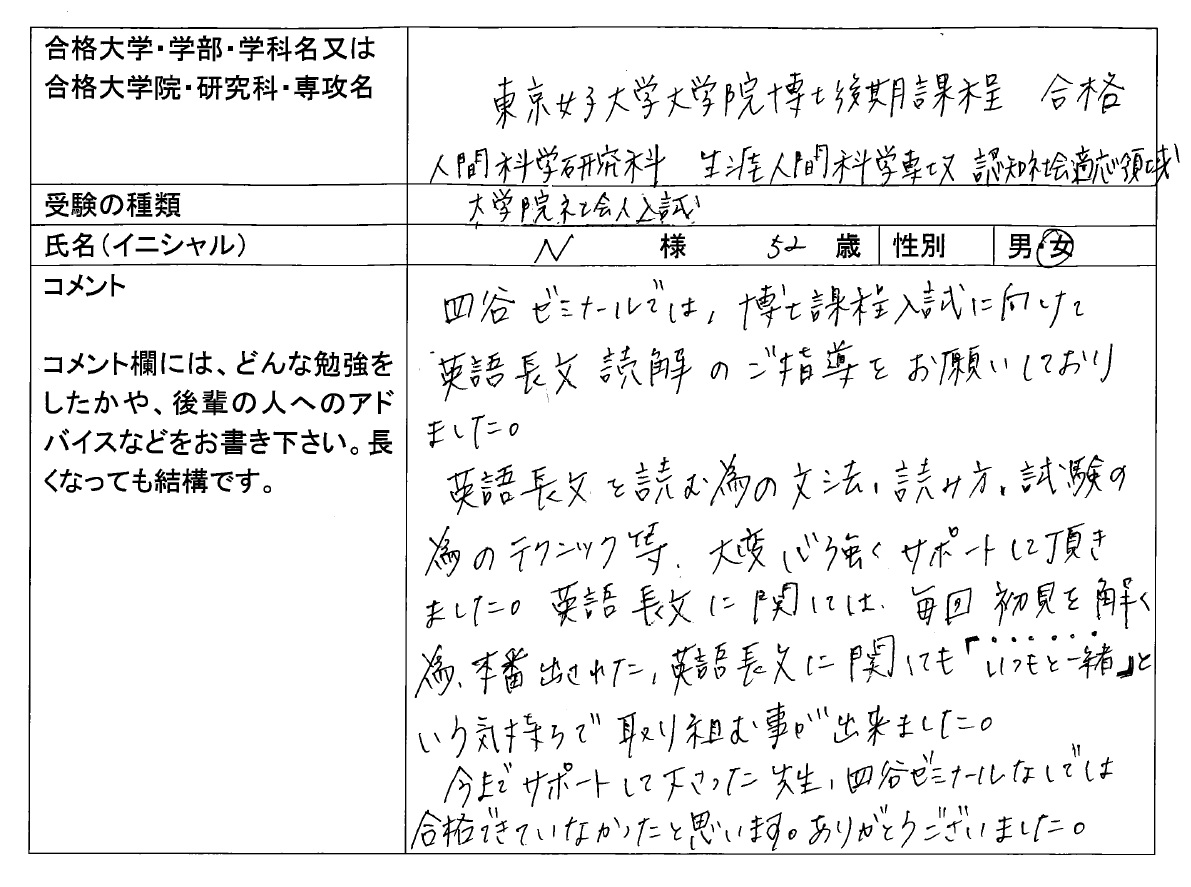 合格大学・学部・学科名又は
合格大学院・研究科・専攻名
東京女子大学大学院博士後期課程 合格
人間科学研究科 生涯人間科学専攻 認知社会適応領域
受験の種類
大学院社会人入試
氏名(イニシャル)
N 様 52 歳 性別 男・女
コメント
コメント欄には、どんな勉強を
したかや、後輩の人へのアド
バイスなどをお書き下さい。長
くなっても結構です。
四谷ゼミナールでは、博士課程入試に向けて
英語長文読解のご指導をお願いしており
ました。
英語長文を読む為の文法、読み方、試験の
為のテクニック等、大変心強くサポートして頂き
ました。英語長文に関しては、毎回初見を解く
為、本番出された、英語長文に関しても『いつもと一緒』と
いう気持ちで取り組む事が出来ました。
今までサポートして下さった先生、四谷ゼミナールなしでは
合格できていなかったと思います。ありがとうございました。